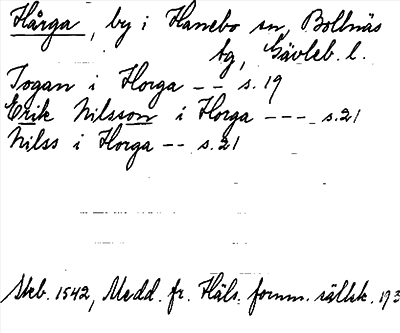 Hårga, by i Hanebo sn, Bollnäs
tg, Gävleb. l.
Jogan i Horga -- s. 19
Erik Nilsson i Horga --- s. 21
Nilss i Horga -- s. 21
Skeb. 1542, Medd. fr. Häls. fornm. sällsk. 193